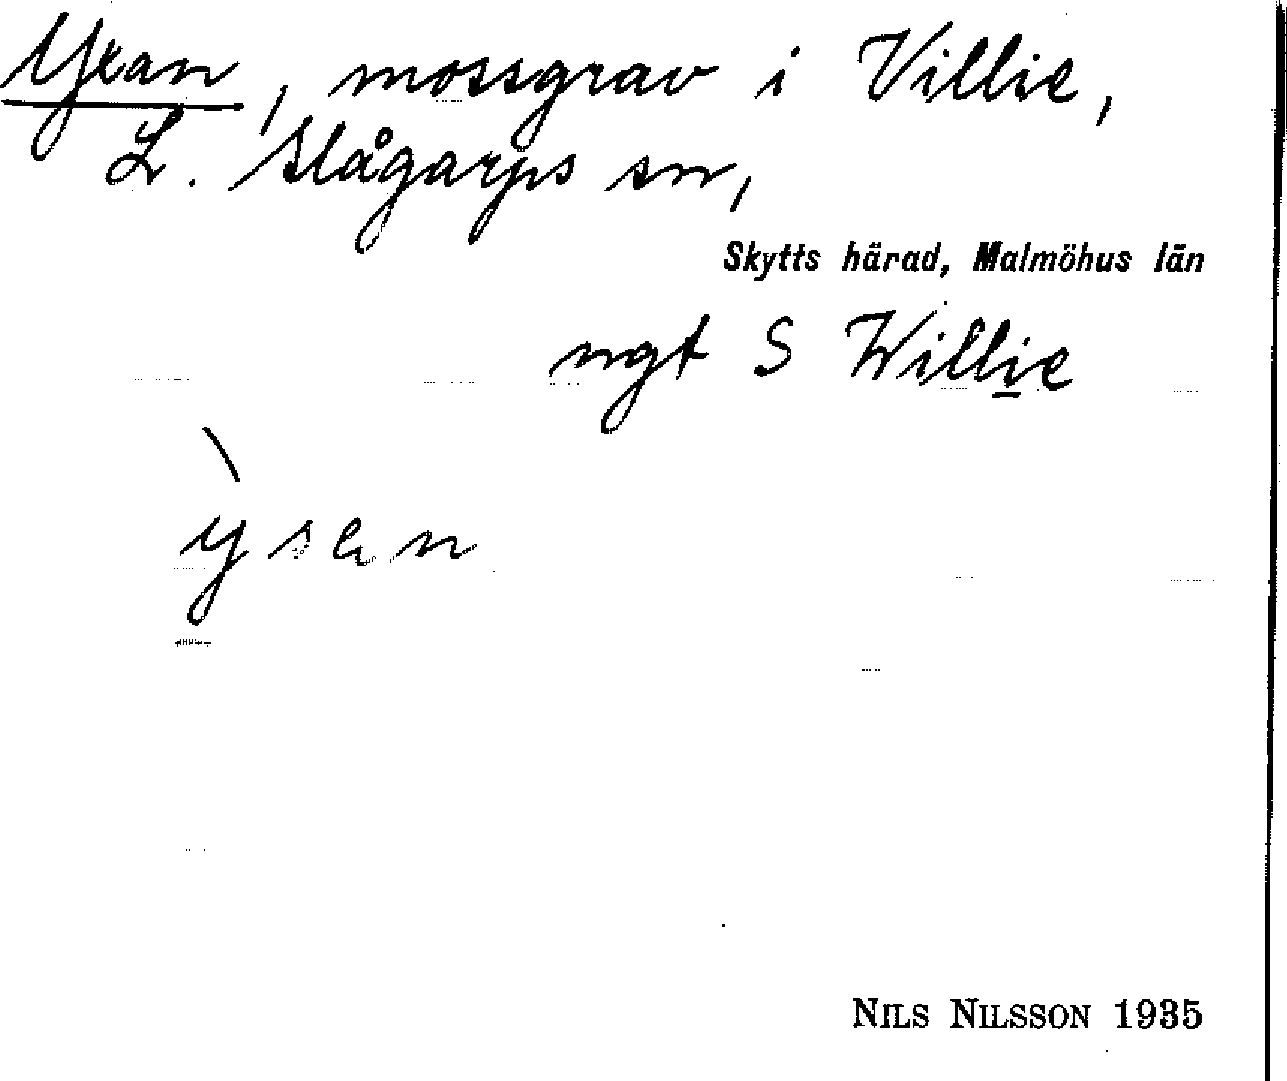 Ysan, mossgrav i Villie,
L. Slågarps sn,
Skytts härad, Malmöhus län
ngt S Willie
ysan
NILS NILSSON 1935